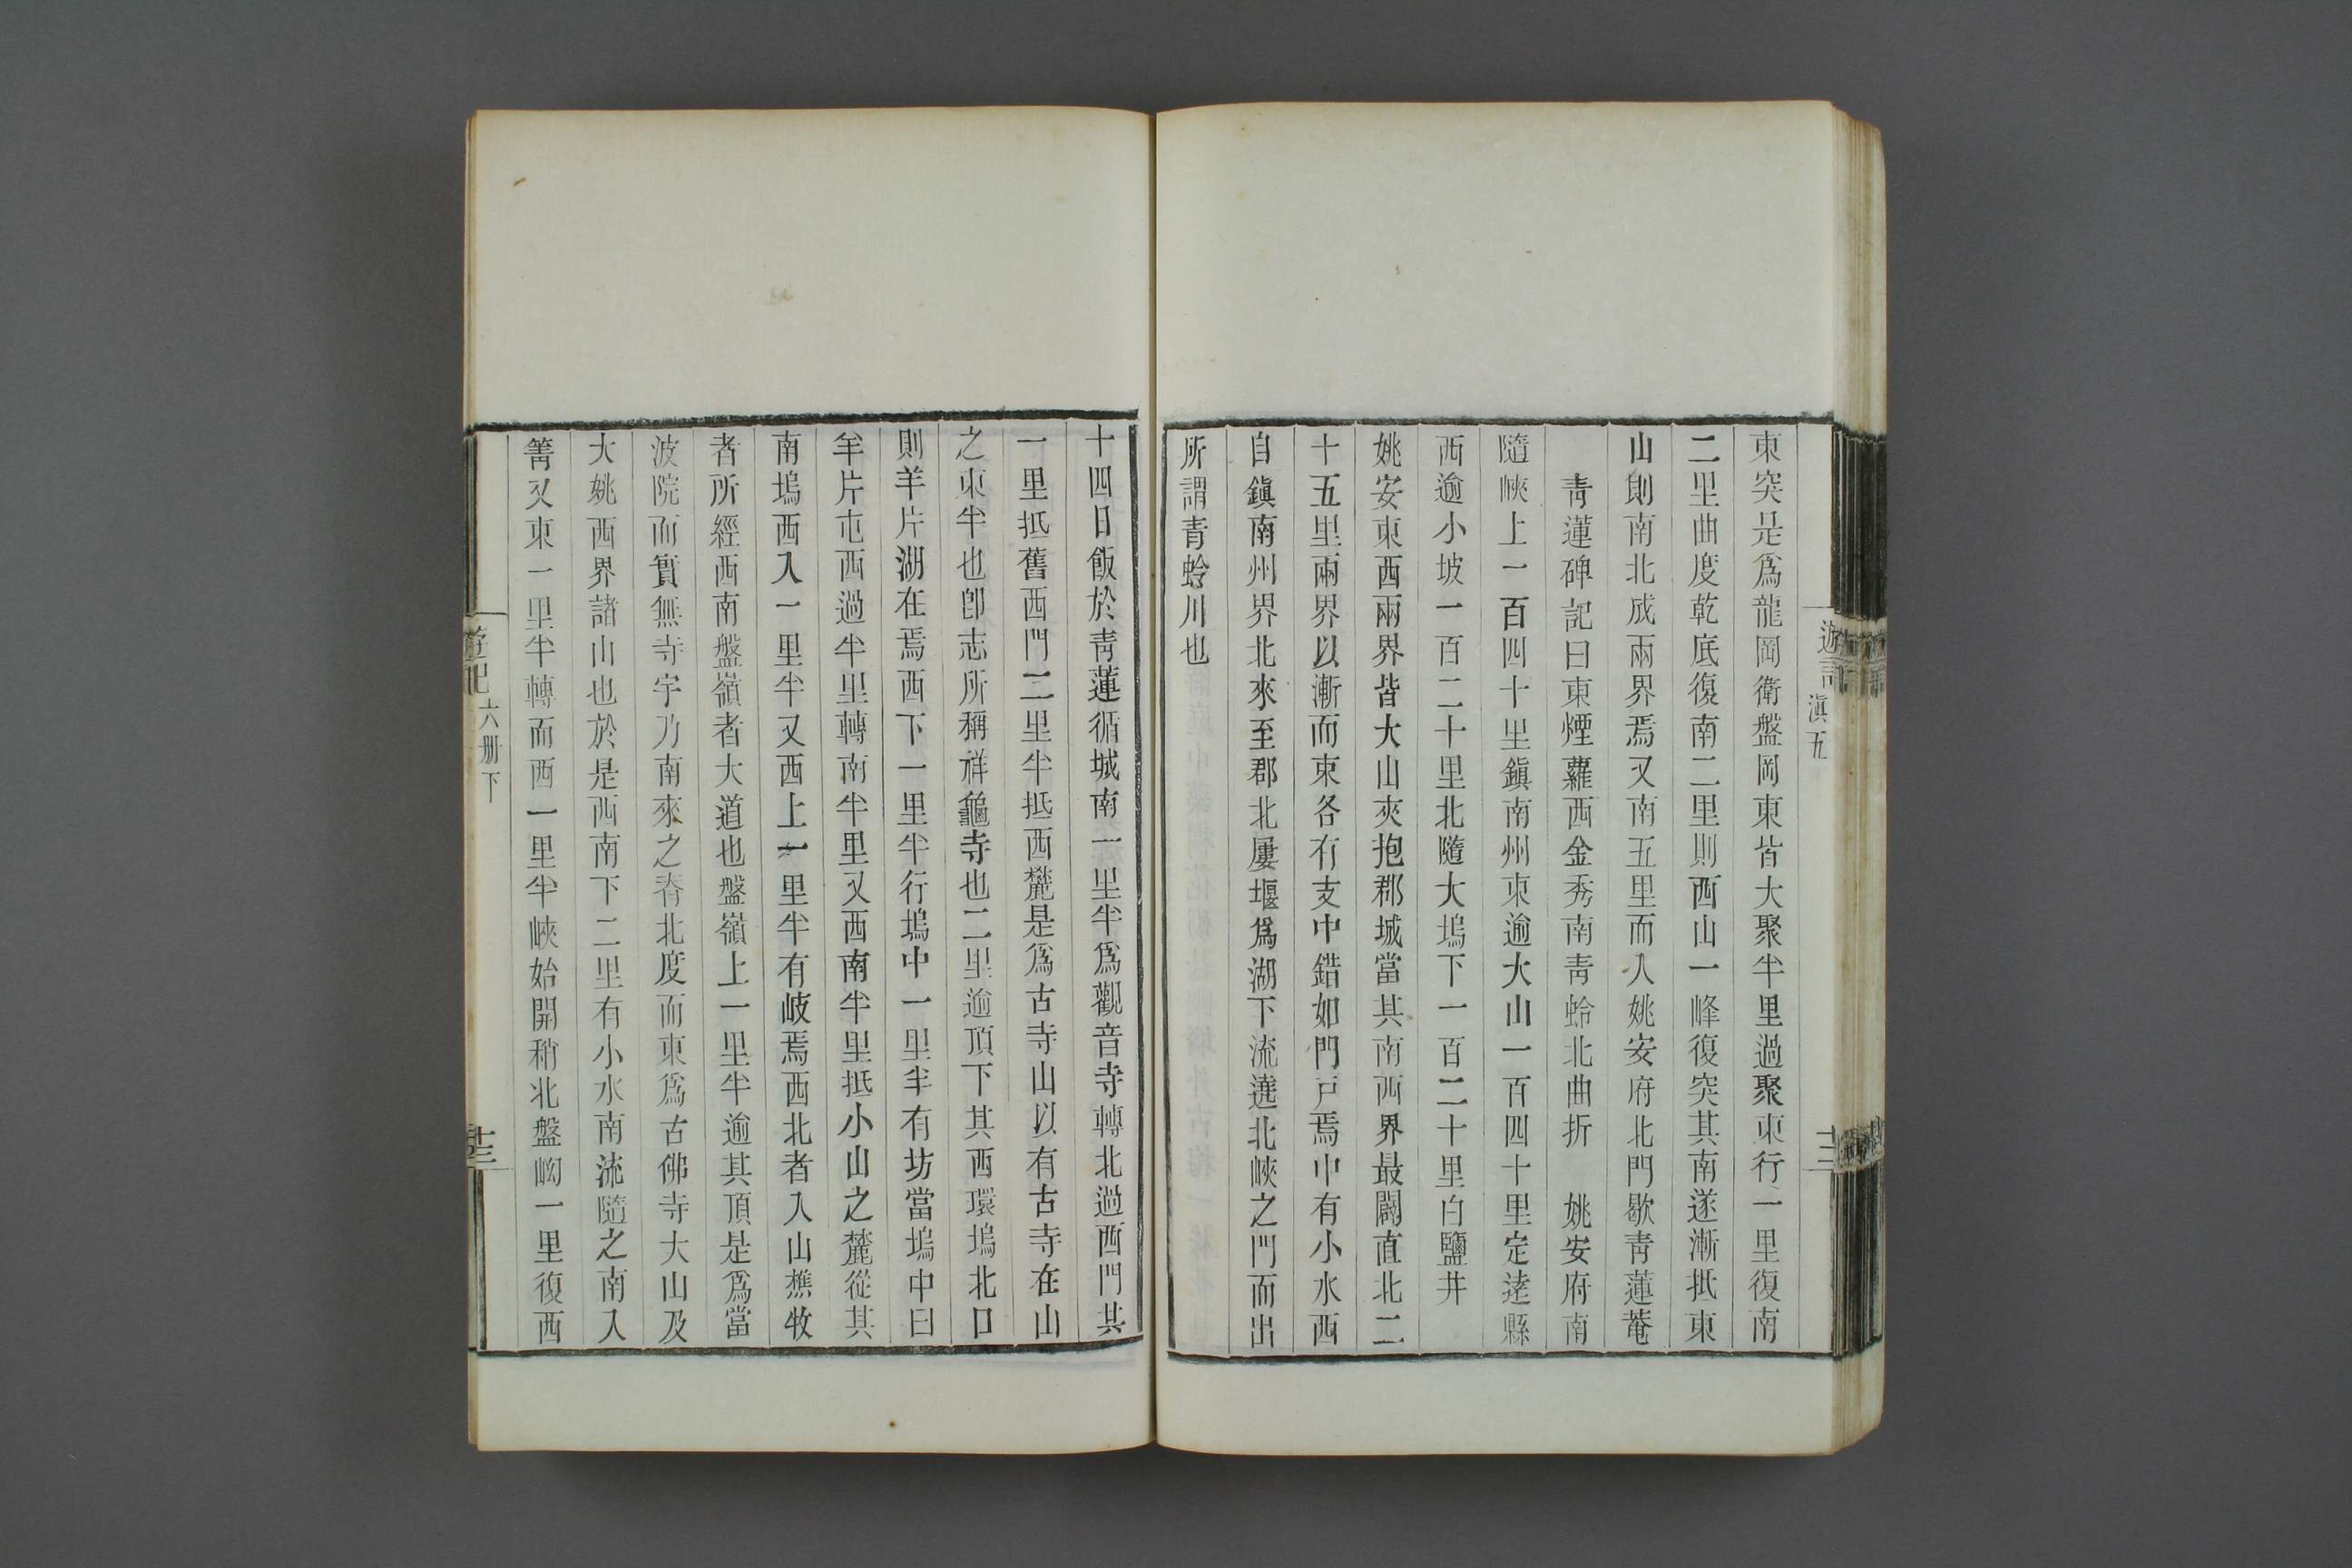 遊記
滇五
十二
東突是爲龍岡衛盤岡東皆大聚半里過聚東行一里復南
二里曲度乾底復南二里則西山一峰復突其南遂漸抵東
山則南北成兩界焉又南五里而入姚安府北門歇青蓮菴
青蓮碑記曰東煙蘿西金秀南青蛉北曲折　姚安府南
隨峽上一百四十里鎭南州東逾大山一百四十里定逹縣
西逾小坡一百二十里北隨大塢下一百二十里白鹽井
姚安東西兩界皆大山夾抱郡城當其南西界最闢直北二
十五里兩界以漸而東各有支中錯如門戸焉中有小水西
自鎭南州界北來至郡北屢堰爲湖下流遶北峽之門而出
所謂青蛉川也
十四日飯於青蓮循城南一里半爲觀音寺轉北過西門其
一里抵舊西門二里半抵西麓是爲古寺山以有古寺在山
之東半也卽志所稱祥龜寺也二里逾頂下其西環塢北口
則羊片湖在焉西下一里半行塢中一里半有坊當塢中曰
羊片屯西過半里轉南半里又西南半里抵小山之麓從其
南塢西入一里半又西上一里半有岐焉西北者入山樵牧
者所經西南盤嶺者大道也盤嶺上一里半逾其頂是爲當
波院而實無寺宇乃南來之脊北度而東爲古佛寺大山及
大姚西界諸山也於是西南下二里有小水南流隨之南入
箐又東一里半轉而西一里半峽始開稍北盤峋一里復西
遊記
六册下
十三